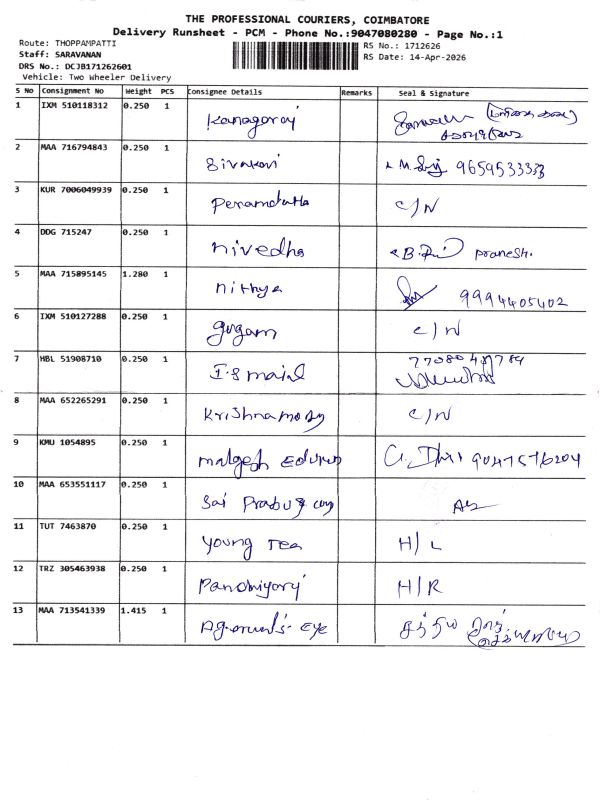 THE PROFESSIONAL COURIERS, COIMBATORE
Delivery Runsheet - PCM - Phone No.:9047080280 - Page No.:1
Route: THOPPAMPATTI
RS No.: 1712626
Staff: SARAVANAN
RS Date: 14-Apr-2026
DRS No.: DCJB171262601
Vehicle: Two Wheeler Delivery
S No Consignment No Weight PCS Consignee Details Remarks Seal & Signature
1 IXM 510118312 0.250 1 Kanagaraj
2 MAA 716794843 0.250 1 Sivakavi 9659533333
3 KUR 7006049939 0.250 1 C/N
4 DDG 715247 0.250 1 nivedha pranesh.
5 MAA 715895145 1.280 1 nithya 9994405402
6 IXM 510127288 0.250 1 gugam C/N
7 HBL 51908710 0.250 1 I.smail
8 MAA 652265291 0.250 1 C/N
9 KMU 1054895 0.250 1
10 MAA 653551117 0.250 1 Sai
11 TUT 7463870 0.250 1 Young Tea H/L
12 TRZ 305463938 0.250 1 H/R
13 MAA 713541339 1.415 1 Eye